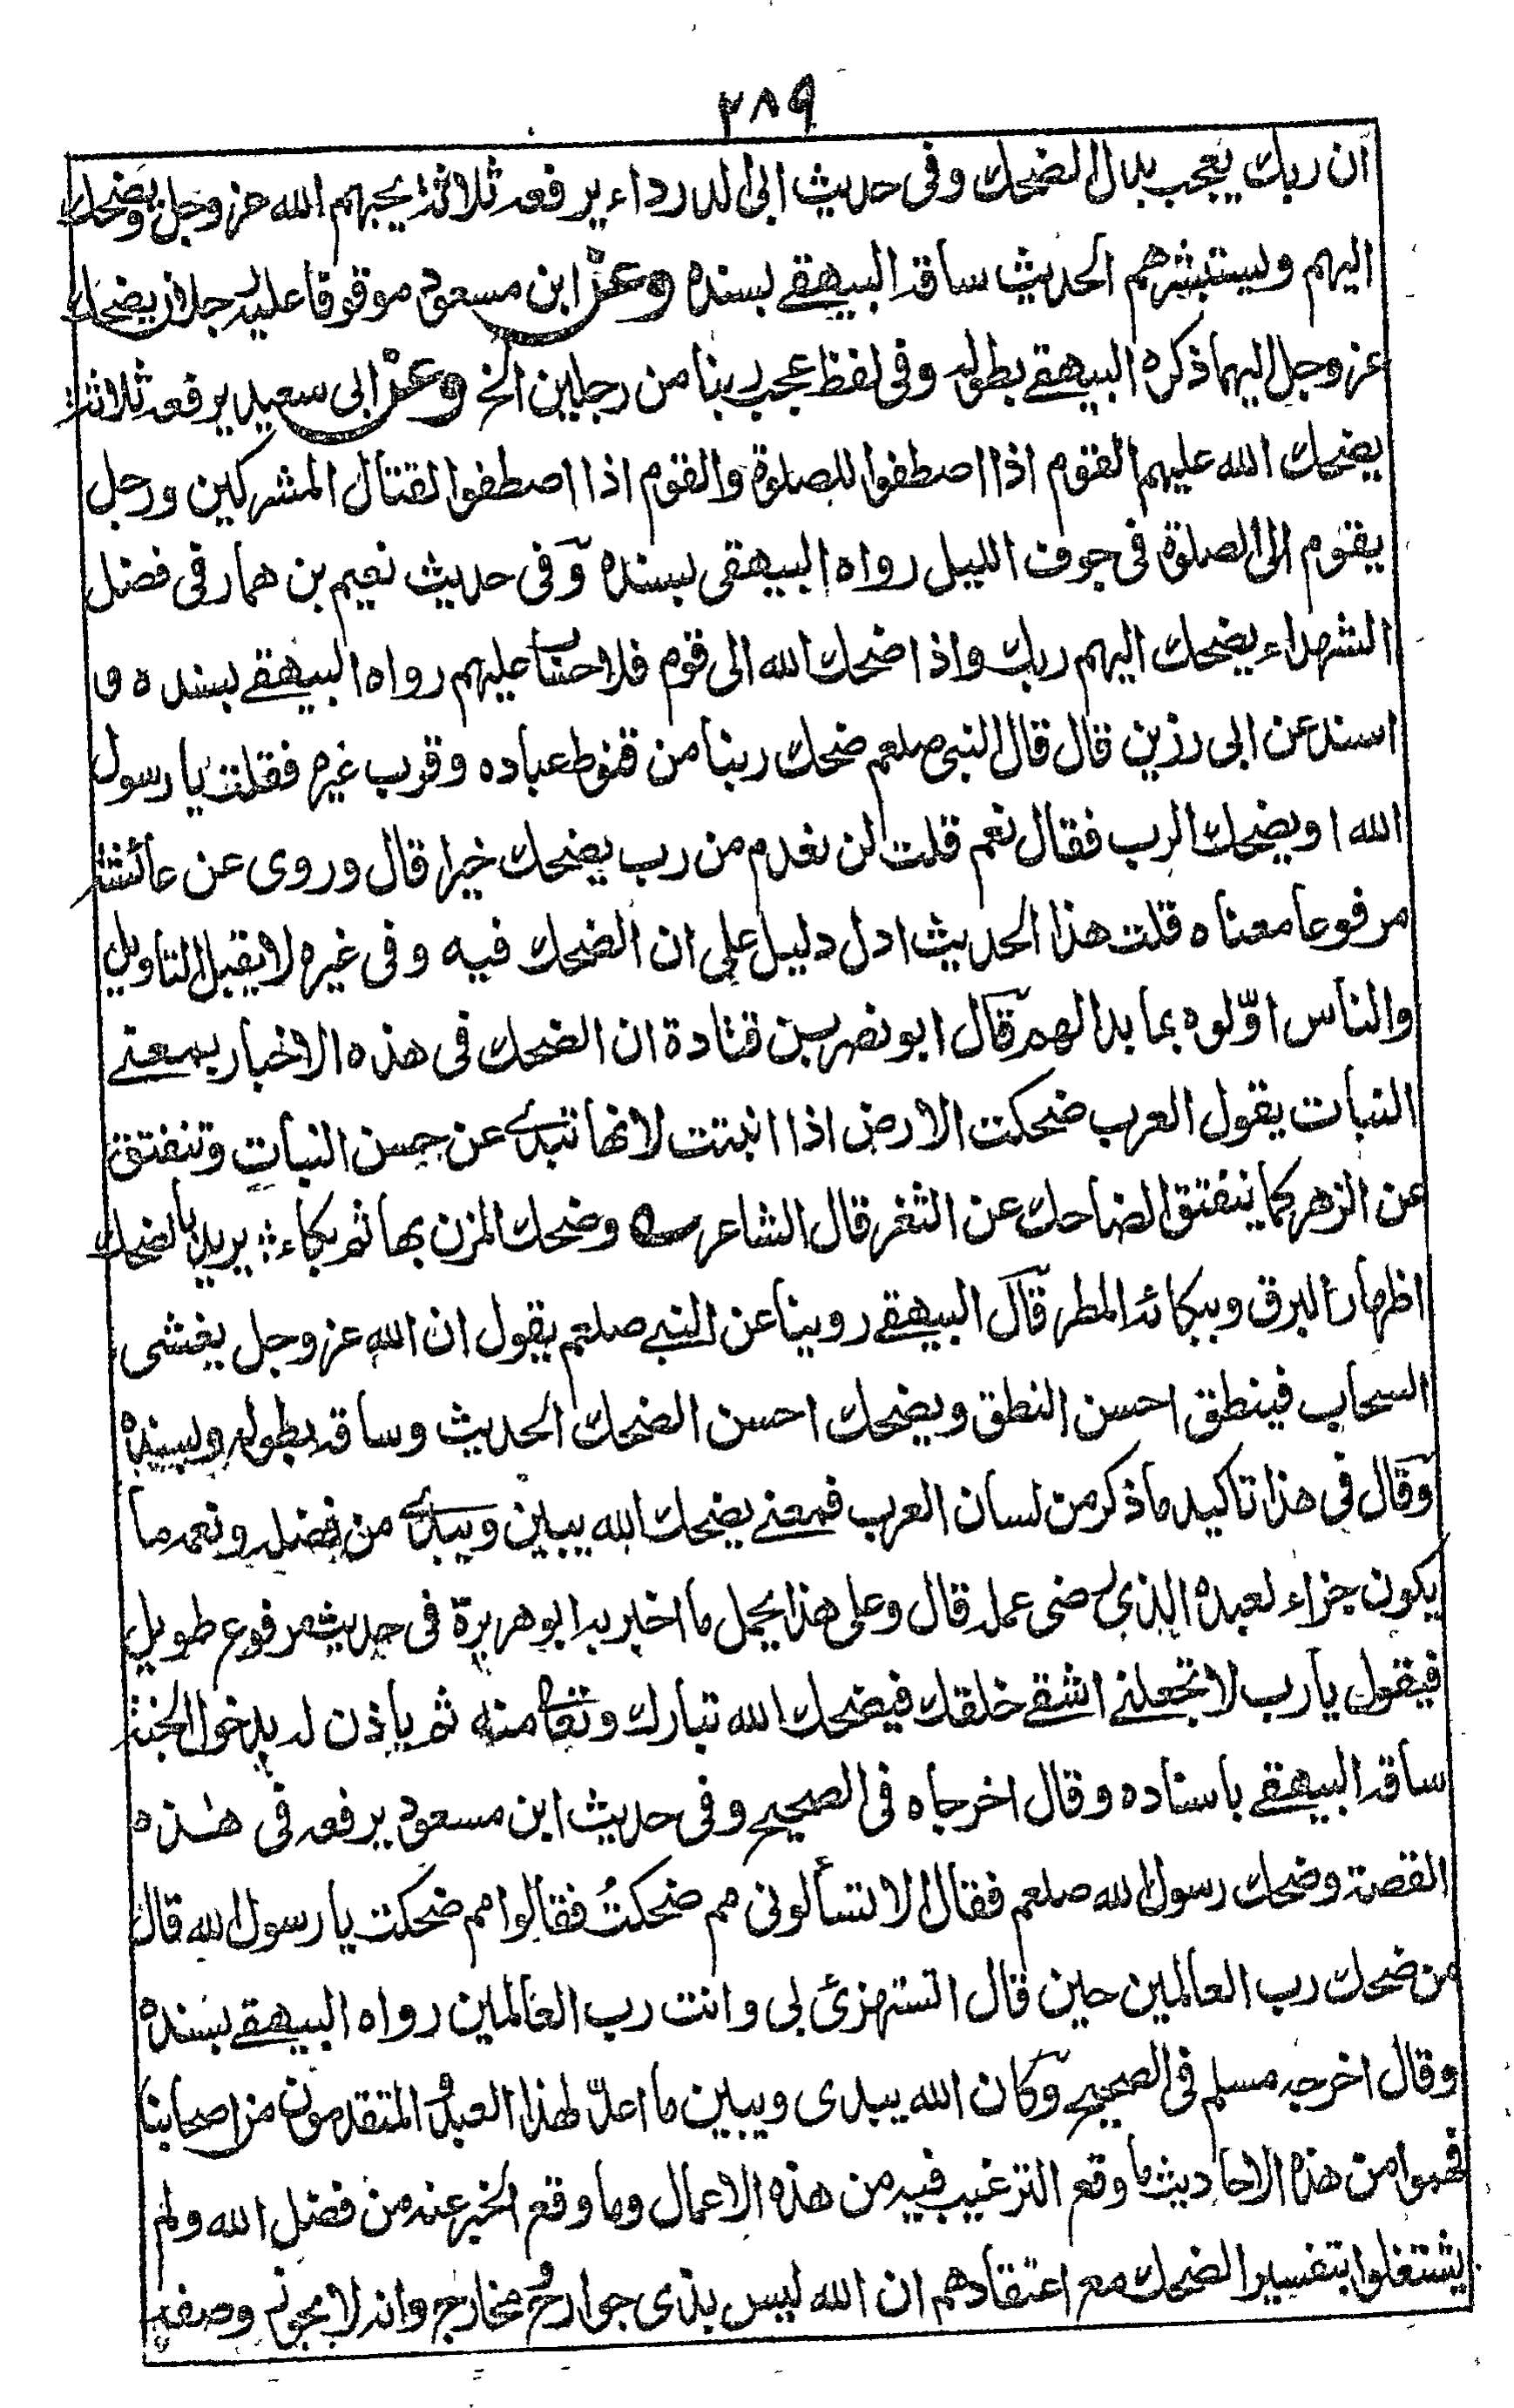 ٢٨٩
ان ربك يعجب بدل الضحك وفى حديث ابى الدرداء يرفعه ثلاثة يحبهم الله عز وجل ويضحك
اليهم ويستبشرهم الحديث ساقه البيهقے بسنده وعن ابن مسعود موقوفا عليه رجلان يضحك
عز وجل اليهما ذكره البيهقے بطوله وفى لفظ عجب ربنا من رجلين الخ وعن ابى سعيد يرفعه ثلاثة
يضحك الله عليهم القوم اذا اصطفوا للصلوة والقوم اذا اصطفوا لقتال المشركين ورجل
يقوم الى الصلوة فى جوف الليل رواه البيهقى بسنده وفى حديث نعيم بن همار فى فضل
الشهداء يضحك اليهم ربك واذا ضحك الله الى قوم فلا حساب عليهم رواه البيهقے بسنده و
اسند عن ابى رزين قال قال النبى صلعم ضحك ربنا من قنوط عباده وقرب غيره فقلت يا رسول
الله او يضحك الرب فقال نعم قلت لن نعدم من رب يضحك خيرا قال وروى عن عائشة
مرفوعا معناه قلت هذا الحديث ادل دليل على ان الضحك فيه وفى غيره لا يقبل التاويل
والناس اوّلوه بما بدا لهم قال ابو نصر بن قتادة ان الضحك فى هذه الاخبار بمعنے
النبات يقول العرب ضحكت الارض اذا انبتت لانها تبدے عن حسن النبات وتنفتق
عن الزهر كما ينفتق الضاحك عن الثغر قال الشاعر ؎ وضحك المزن بها ثم بكاء ؞ يريد بالضحك
اظهار البرق وببكائه المطر قال البيهقے روينا عن النبے صلعم يقول ان الله عز وجل يغشى
السحاب فينطق احسن النطق ويضحك احسن الضحك الحديث وساقه بطوله وبسنده
وقال فى هذا تاكيد ما ذكر من لسان العرب فمعنے يضحك الله يبين ويبدے من فضله ونعمه ما
يكون جزاء لعبده الذى رضى عمله قال وعلى هذا يحمل ما اخبر به ابو هريرة فى حديث مرفوع طويل
فيقول يا رب لا تجعلنے اشقے خلقك فيضحك الله تبارك وتعا منه ثم ياذن له بدخول الجنة
ساقه البيهقے باسناده وقال اخرجاه فى الصحيح وفى حديث ابن مسعود يرفعه فى هذه
القصة وضحك رسول الله صلعم فقال الا تسألونى مم ضحكتُ فقالوا مم ضحكت يا رسول الله قال
من ضحك رب العالمين حين قال اتستهزئ بى وانت رب العالمين رواه البيهقے بسنده
وقال اخرجه مسلم فى الصحيح وكان الله يبدى ويبين ما اعدّ لهذا العبد والمتقدمون من اصحابنا
فهموا من هذه الاحاديث ما وقع الترغيب فيه من هذه الاعمال وما وقع الخبر عنه من فضل الله ولم
يشتغلوا بتفسير الضحك مع اعتقادهم ان الله ليس بذى جوارح ومخارج وانه لا يجوز وصفه